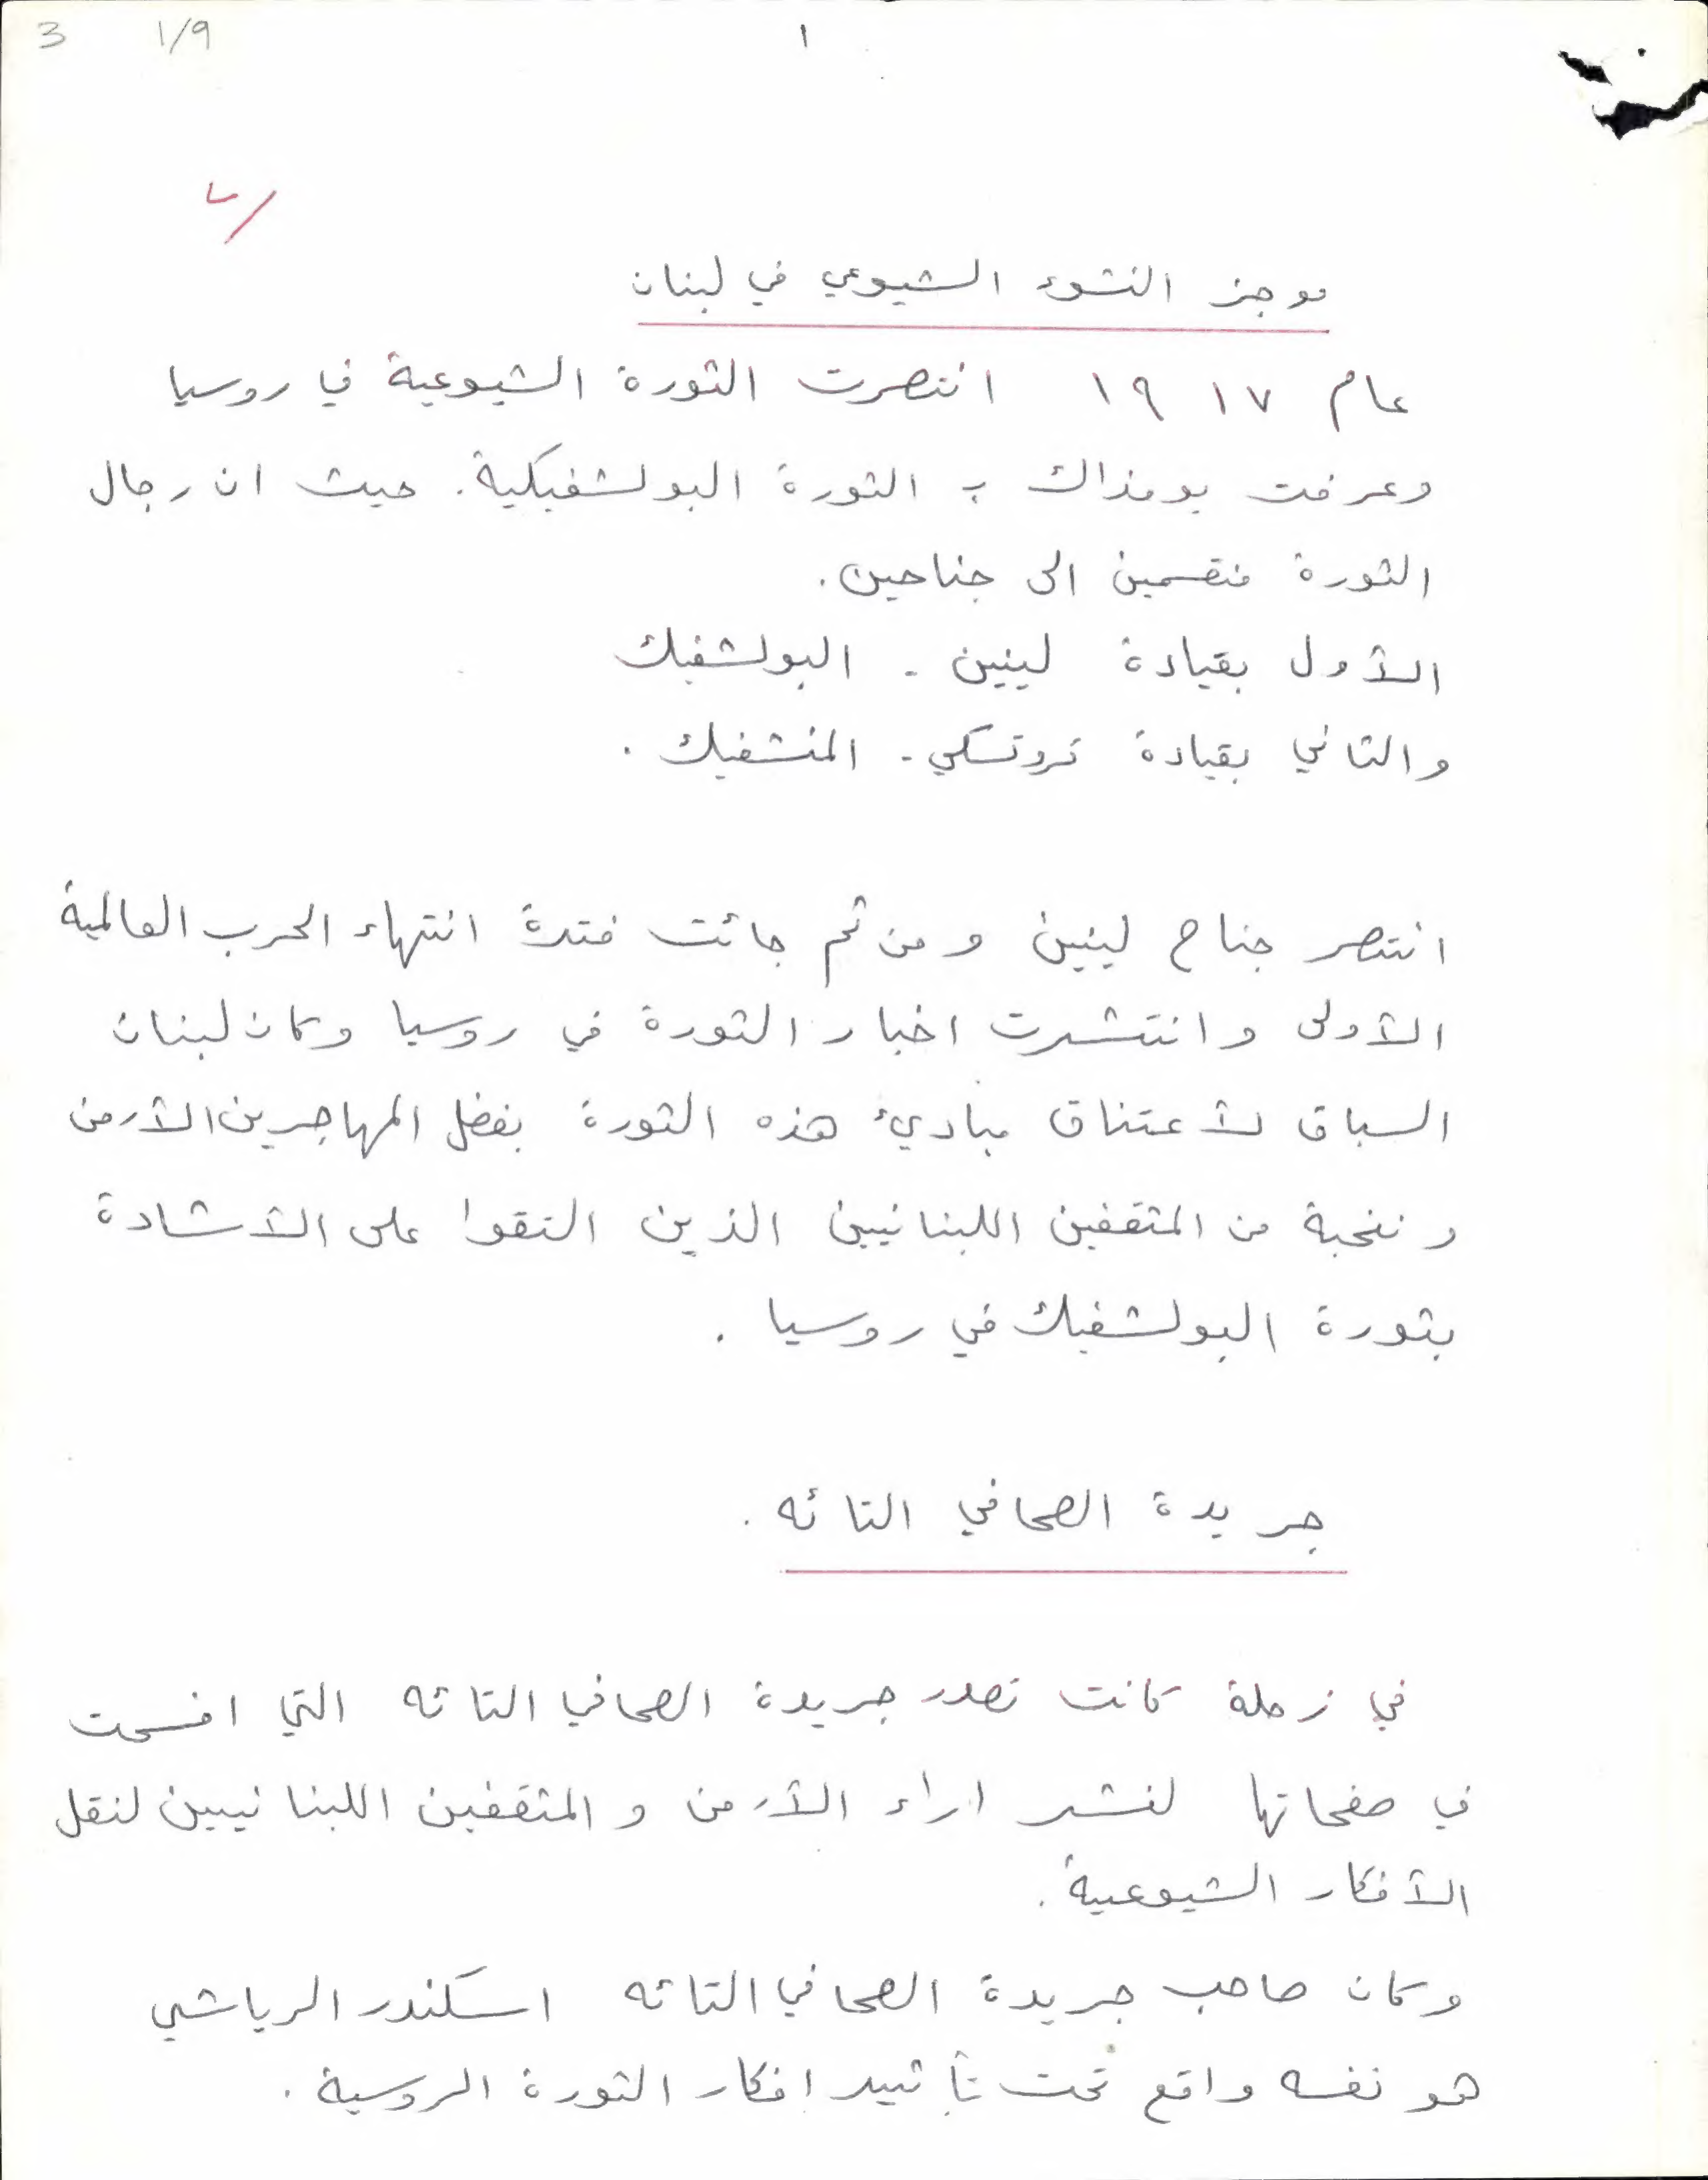 3 1/9
١
موجز النشوء الشيوعي في لبنان
عام ١٩١٧ انتصرت الثورة الشيوعية في روسيا
وعرفت يومذاك بـ الثورة البولشفيكية. حيث ان رجال
الثورة منقسمين الى جناحين.
الأول بقيادة لينين - البولشفيك
والثاني بقيادة تروتسكي - المنشفيك.
انتصر جناح لينين ومن ثم جائت فترة انتهاء الحرب العالمية
الأولى وانتشرت اخبار الثورة في روسيا وكان لبنان
السباق لأعتناق مباديء هذه الثورة بفضل المهاجرين الأرمن
ونخبة من المثقفين اللبنانيين الذين التقوا على الأشادة
بثورة البولشفيك في روسيا.
جريدة الصحافي التائه.
في زحلة كانت تصدر جريدة الصحافي التائه التي افسحت
في صفحاتها لنشر اراء الأرمن والمثقفين اللبنانيين لنقل
الأفكار الشيوعية.
وكان صاحب جريدة الصحافي التائه اسكندر الرياشي
هو نفسه واقع تحت تأثير افكار الثورة الروسية.